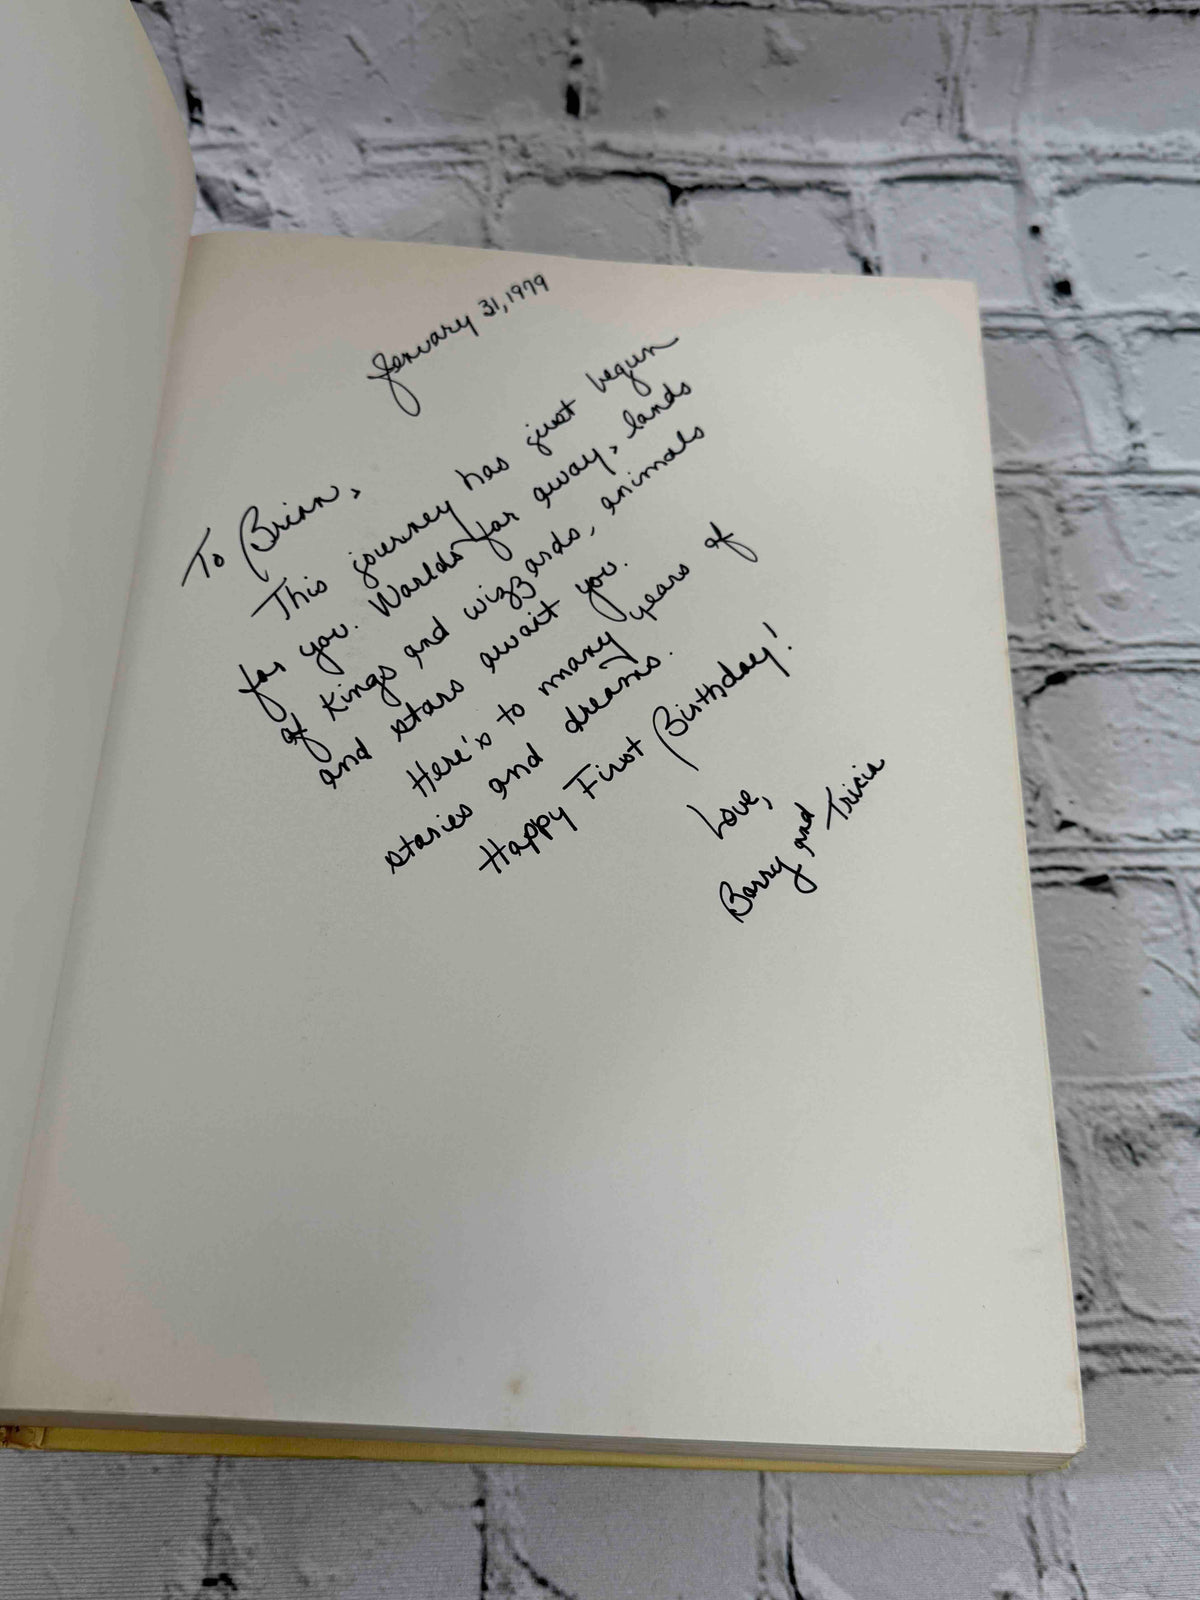 January 31, 1979
To Brian,
This journey has just begun
for you. Worlds far away, lands
of Kings and wizzards, animals
and stars await you.
Here's to many years of
stories and dreams.
Happy First Birthday!
Love,
Barry and Tricia